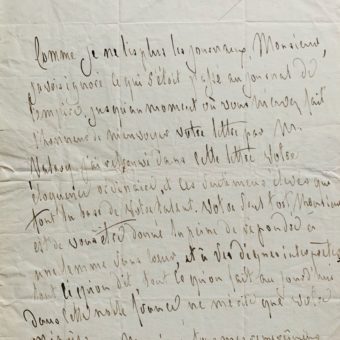 Comme je ne lis plus les journaux, Monsieur,
j'avois ignoré ce qui s'étoit passé au journal de
l'empire, jusqu'au moment où vous m'avez fait
l'honneur de m'envoyer votre lettre par M.
j'ai retrouvé dans cette lettre votre
éloquence ordinaire, et ces sentimens élevés qui
font la base de votre talent. Votre seul tort, Monsieur
est de vous être donné la peine de répondre à
un homme sans , et à des dignes interprètes
tout ce qu'on dit, tout ce qu'on fait aujourd'hui
dans cette noble france ne mérite que votre
mépris.